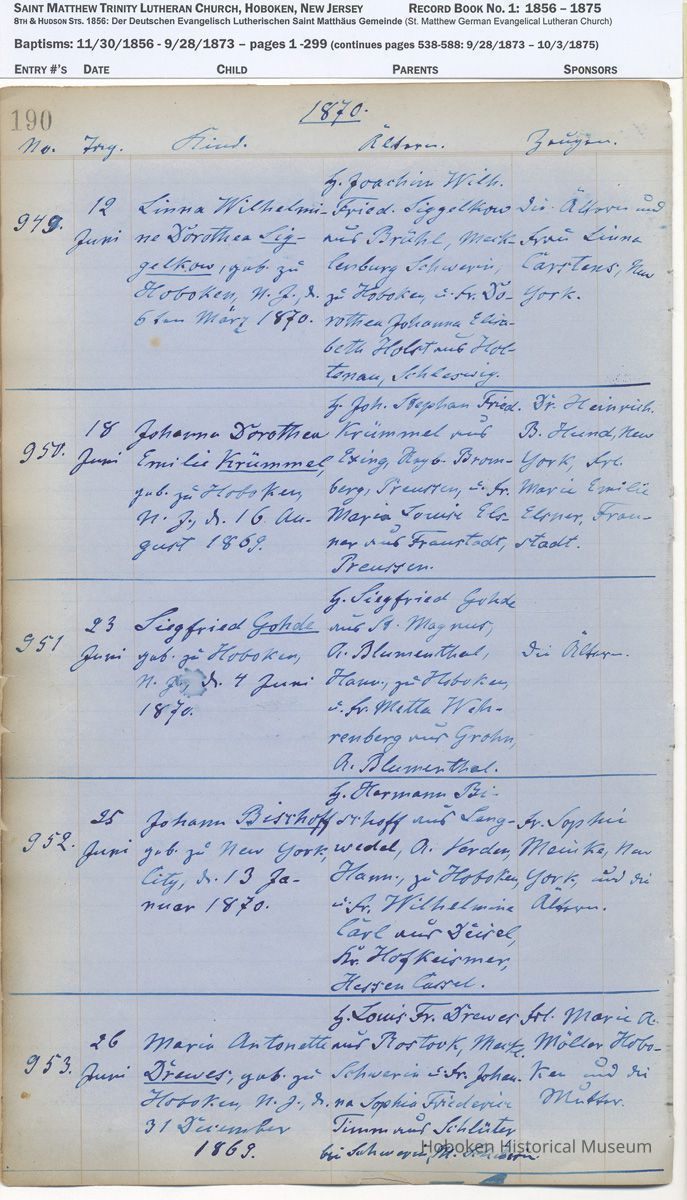 SAINT MATTHEW TRINITY LUTHERAN CHURCH, HOBOKEN, NEW JERSEY RECORD BOOK NO. 1: 1856 – 1875
8TH & HUDSON STS. 1856: Der Deutschen Evangelisch Lutherischen Saint Matthäus Gemeinde (St. Matthew German Evangelical Lutheran Church)
Baptisms: 11/30/1856 - 9/28/1873 – pages 1 -299 (continues pages 538-588: 9/28/1873 – 10/3/1875)
ENTRY #'S DATE CHILD PARENTS SPONSORS
190
1870.
No. Tag. Kind. Ältern. Zeugen.
949.
12
Juni
Linna Wilhelmi-
ne Dorothea Sig-
gelkow, geb. zu
Hoboken, N. J., d.
6ten März 1870.
H. Joachim Wilh.
Fried. Siggelkow
aus Brühl, Meck-
lenburg Schwerin,
zu Hoboken, u. Fr. Do-
rothea Johanna Elisa-
beth Holst aus Hol-
tenau, Schleswig.
Die Ältern und
Frau Linna
Carstens, New
York.
950.
18
Juni
Johanna Dorothea
Emilie Krümmel,
geb. zu Hoboken,
N. J., d. 16. Au-
gust 1869.
H. Joh. Stephan Fried.
Krümmel aus
Exing, Rsgb. Brom-
berg, Preussen, u. Fr.
Maria Louise Els-
ner aus Fraustadt,
Preussen.
Dr. Heinrich
B. Hund, New
York, Frl.
Marie Emilie
Elsner, Frau-
stadt.
951
23
Juni
Siegfried Gohde
geb. zu Hoboken,
N. J., d. 4 Juni
1870.
H. Siegfried Gohde
aus St. Magnus,
A. Blumenthal,
Hann., zu Hoboken,
u. Fr. Metta Weh-
renberg aus Grohn,
A. Blumenthal.
Die Ältern.
952.
25
Juni
Johann Bischoff
geb. zu New York,
City, d. 13 Ja-
nuar 1870.
H. Hermann Bi-
schoff aus Lang-
wedel, A. Verden,
Hann., zu Hoboken,
u. Fr. Wilhelmine
Carl aus Deisel,
Kr. Hofgeismer,
Hessen Cassel.
Fr. Sophie
Meinke, New
York, und die
Ältern.
953.
26
Juni
Maria Antonette
Drewes, geb. zu
Hoboken, N. J., d.
31 December
1869.
H. Louis Fr. Drewes
aus Rostock, Meck.
Schwerin u. Fr. Johan-
na Sophia Friederice
Timm aus Schlüter
bei Schwerin, M. Schwerin.
Frl. Marie A.
Möller Hobo-
ken und die
Mutter.
Hoboken Historical Museum